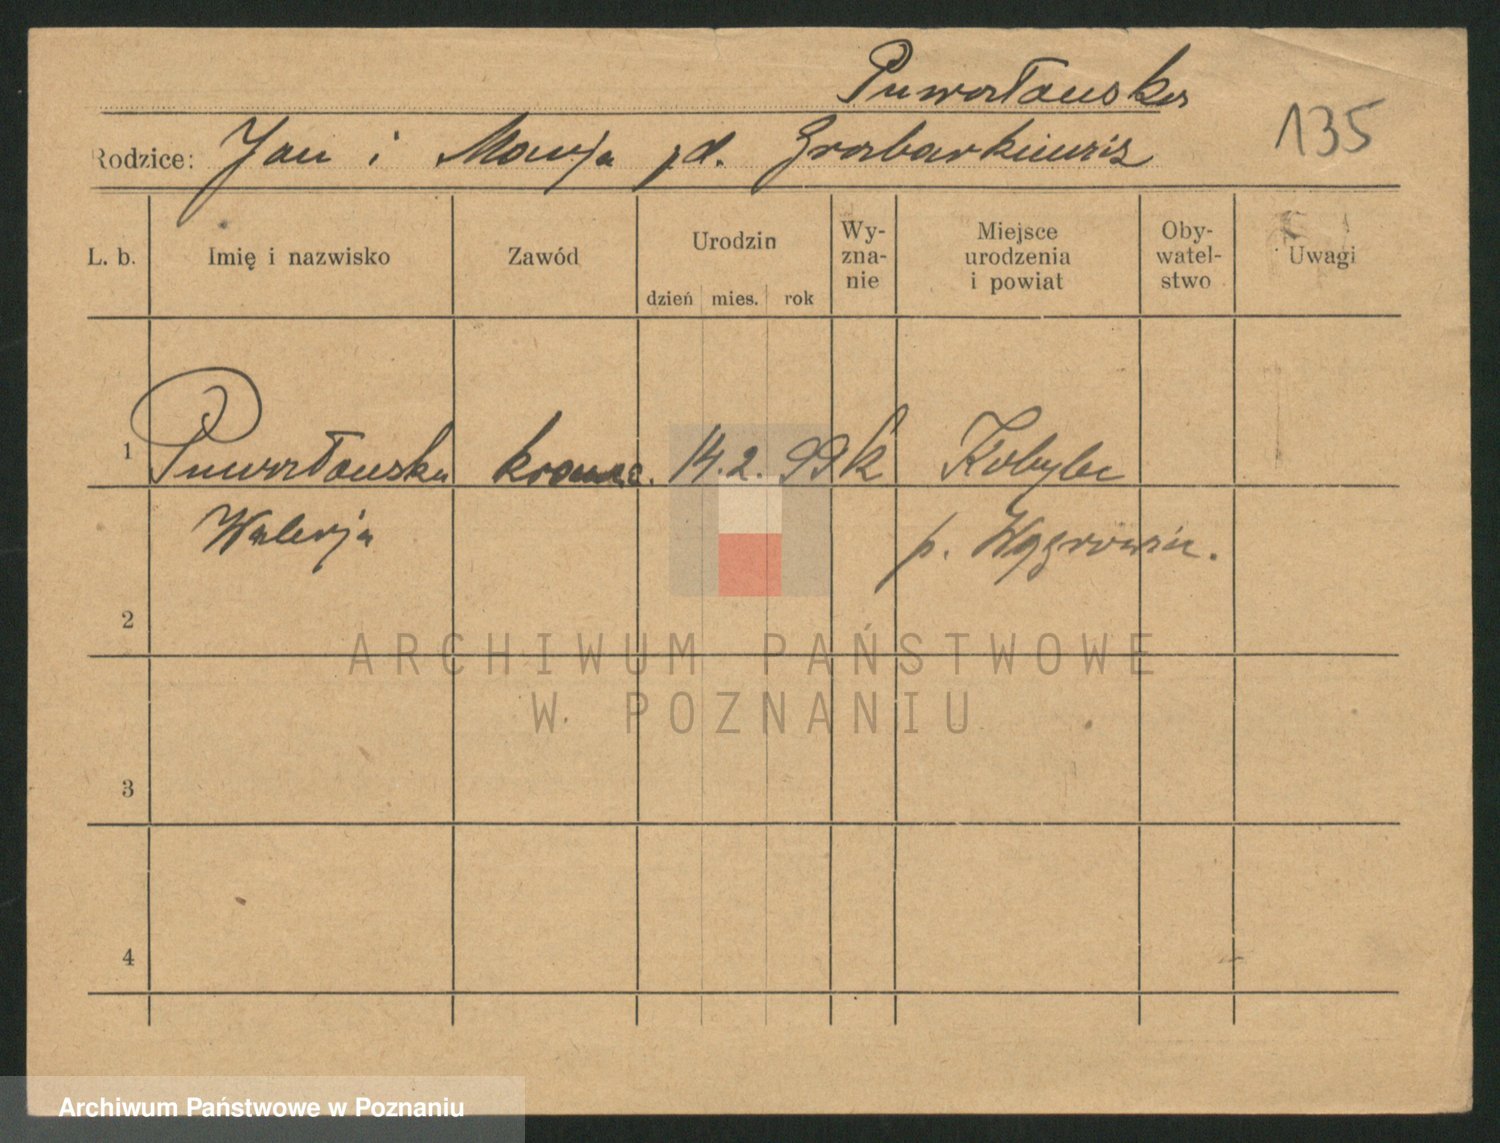 Puwarłauska
135
Rodzice: Jan i Marja zd. Grabarkiewicz
L. b. Imię i nazwisko Zawód Urodzin dzień mies. rok Wy-zna-nie Miejsce urodzenia i powiat Oby-watel-stwo Uwagi
1 14.2.99 k Kobylec
Walerja p. Wągrowiec.
2
ARCHIWUM PAŃSTWOWE
W POZNANIU
3
4
Archiwum Państwowe w Poznaniu